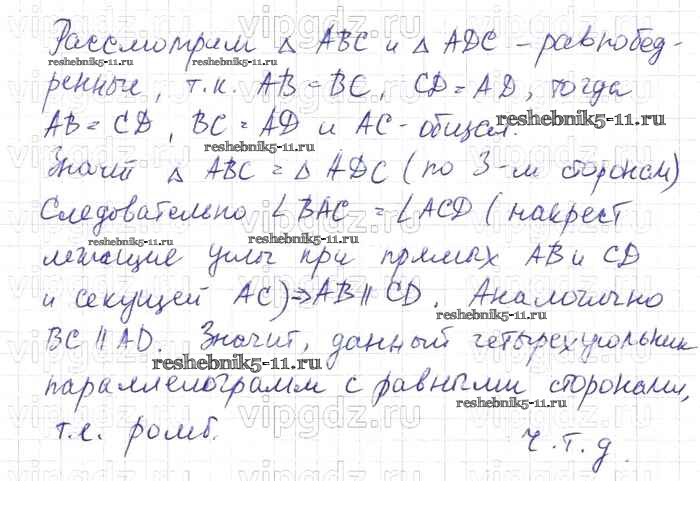 Рассмотрим △ ABC и △ ADC – равнобед-
ренные, т.к. AB = BC, CD = AD, тогда
AB = CD, BC = AD и AC – общая.
Значит △ ABC = △ ADC (по 3-м сторонам)
Следовательно ∠BAC = ∠ACD (накрест
лежащие углы при прямых AB и CD
и секущей AC) ⇒ AB ∥ CD. Аналогично
BC ∥ AD. Значит, данный четырехугольник
параллелограмм с равными сторонами,
т.е. ромб. Ч.Т.Д.
vipgdz.ru
reshebnik5-11.ru